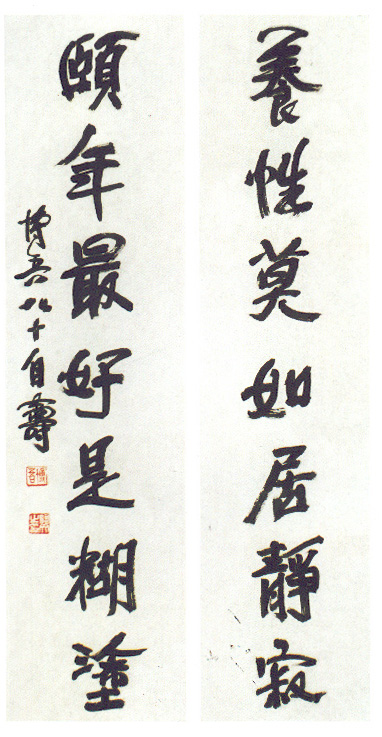 養性莫如居靜寂
頤年最好是糊塗
博吾八十自壽